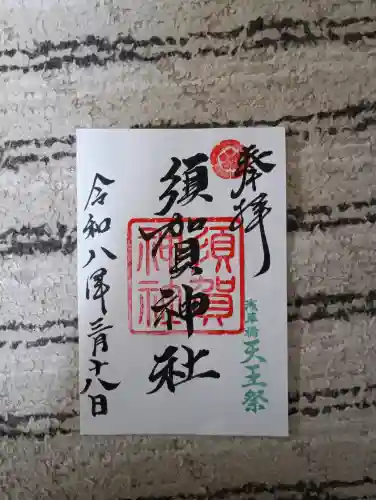 奉拝
須賀神社
須賀
神社
浅草橋
天王祭
令和八年三月十八日